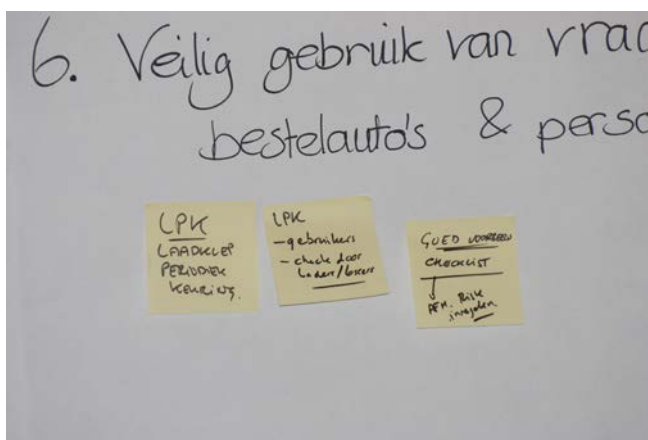 6. Veilig gebruik van vrac
bestelauto's & perso
LPK
LAADKLEP
PERIODIEK
KEURING.
LPK
- gebruikers
- check door
laders/lossers
GOED VOORBEELD
CHECKLIST
Risk